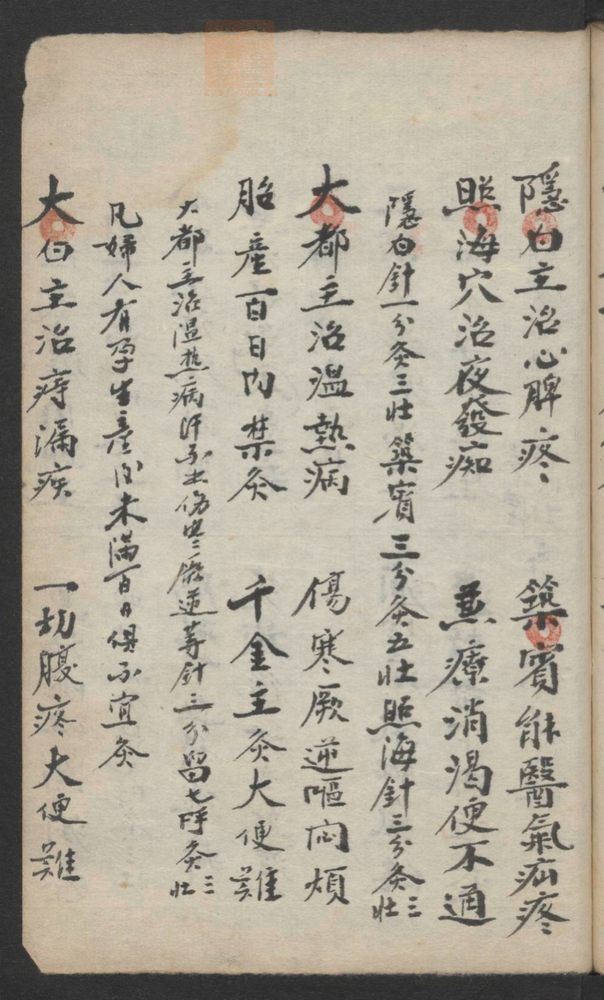 隱白主治心脾疼　築賓能醫氣疝疼
照海穴治夜發痴　兼療消渴便不通
隱白針一分灸三壯築賓三分灸五壯照海針三分灸三壯
大都主治溫熱病　傷寒厥逆嘔悶煩
胎產百日內禁灸　千金主灸大便難
大都主治溫熱病汗不出傷寒厥逆等針三分留七呼灸三壯
凡婦人有孕生產後未滿百日俱不宜灸
大白主治痔漏疾　一切腹疼大便難